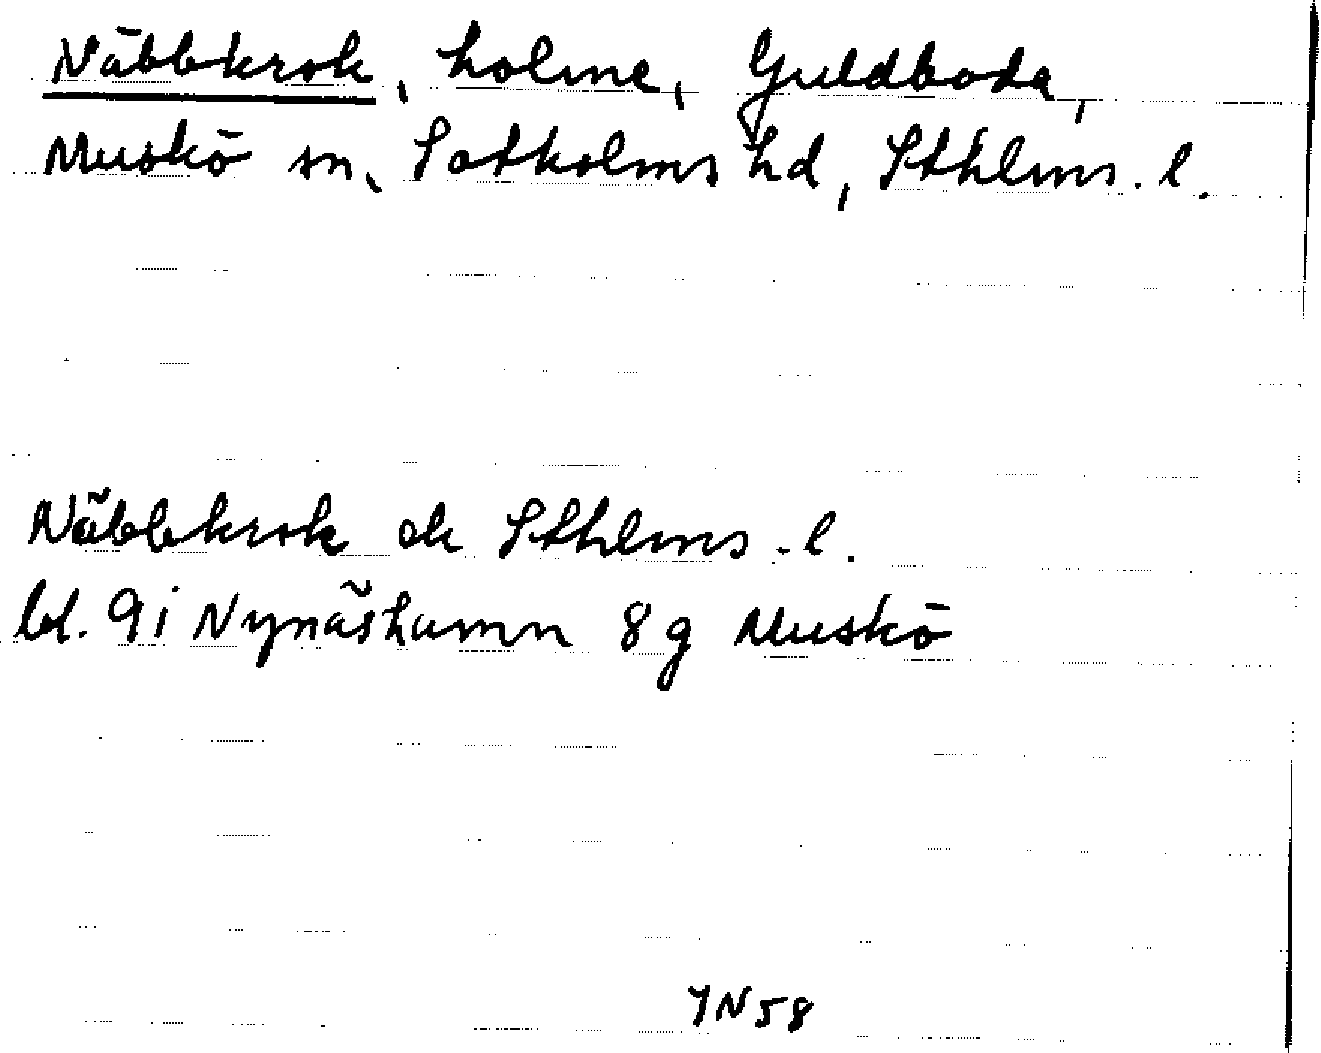 Näbbkrok, holme, Guldboda,
Muskö sn, Sotholms hd, Sthlms.l.
Näbbkrok ek Sthlms.l.
bl. 9i Nynäshamn 8g Muskö
YN58